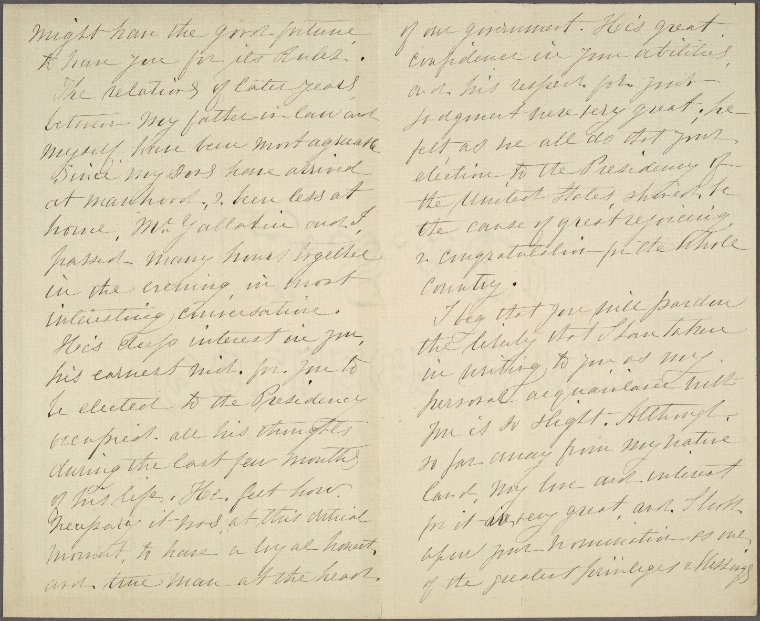 might have the good fortune
to have you for its Ruler.
The relations of later years,
between my father in law and
myself, have been most agreeable
Since my sons have arrived
at manhood, & been less at
home, Mr. Gallatin and I,
passed many hours together
in the evening in most
interesting conversation.
His deep interest in you,
his earnest wish for you to
be elected to the Presidency
occupied all his thoughts
during the last few months
of his life. He felt how
necessary it was, at this critical
moment, to have a loyal honest,
and true man at the head
of our government. His great
confidence in your abilities,
and his respect for your
judgment were very great. he
felt, as we all do that your
election to the Presidency of
the United States, should be
the cause of great rejoicing
& congratulation for the whole
country.
I beg that you will pardon
the liberty that I have taken
in writing to you as my
personal acquaintance with
you is so slight. Although
so far away from my native
land, my love and interest
for it are very great, and I look
upon your nomination as one
of the greatest privileges & blessings